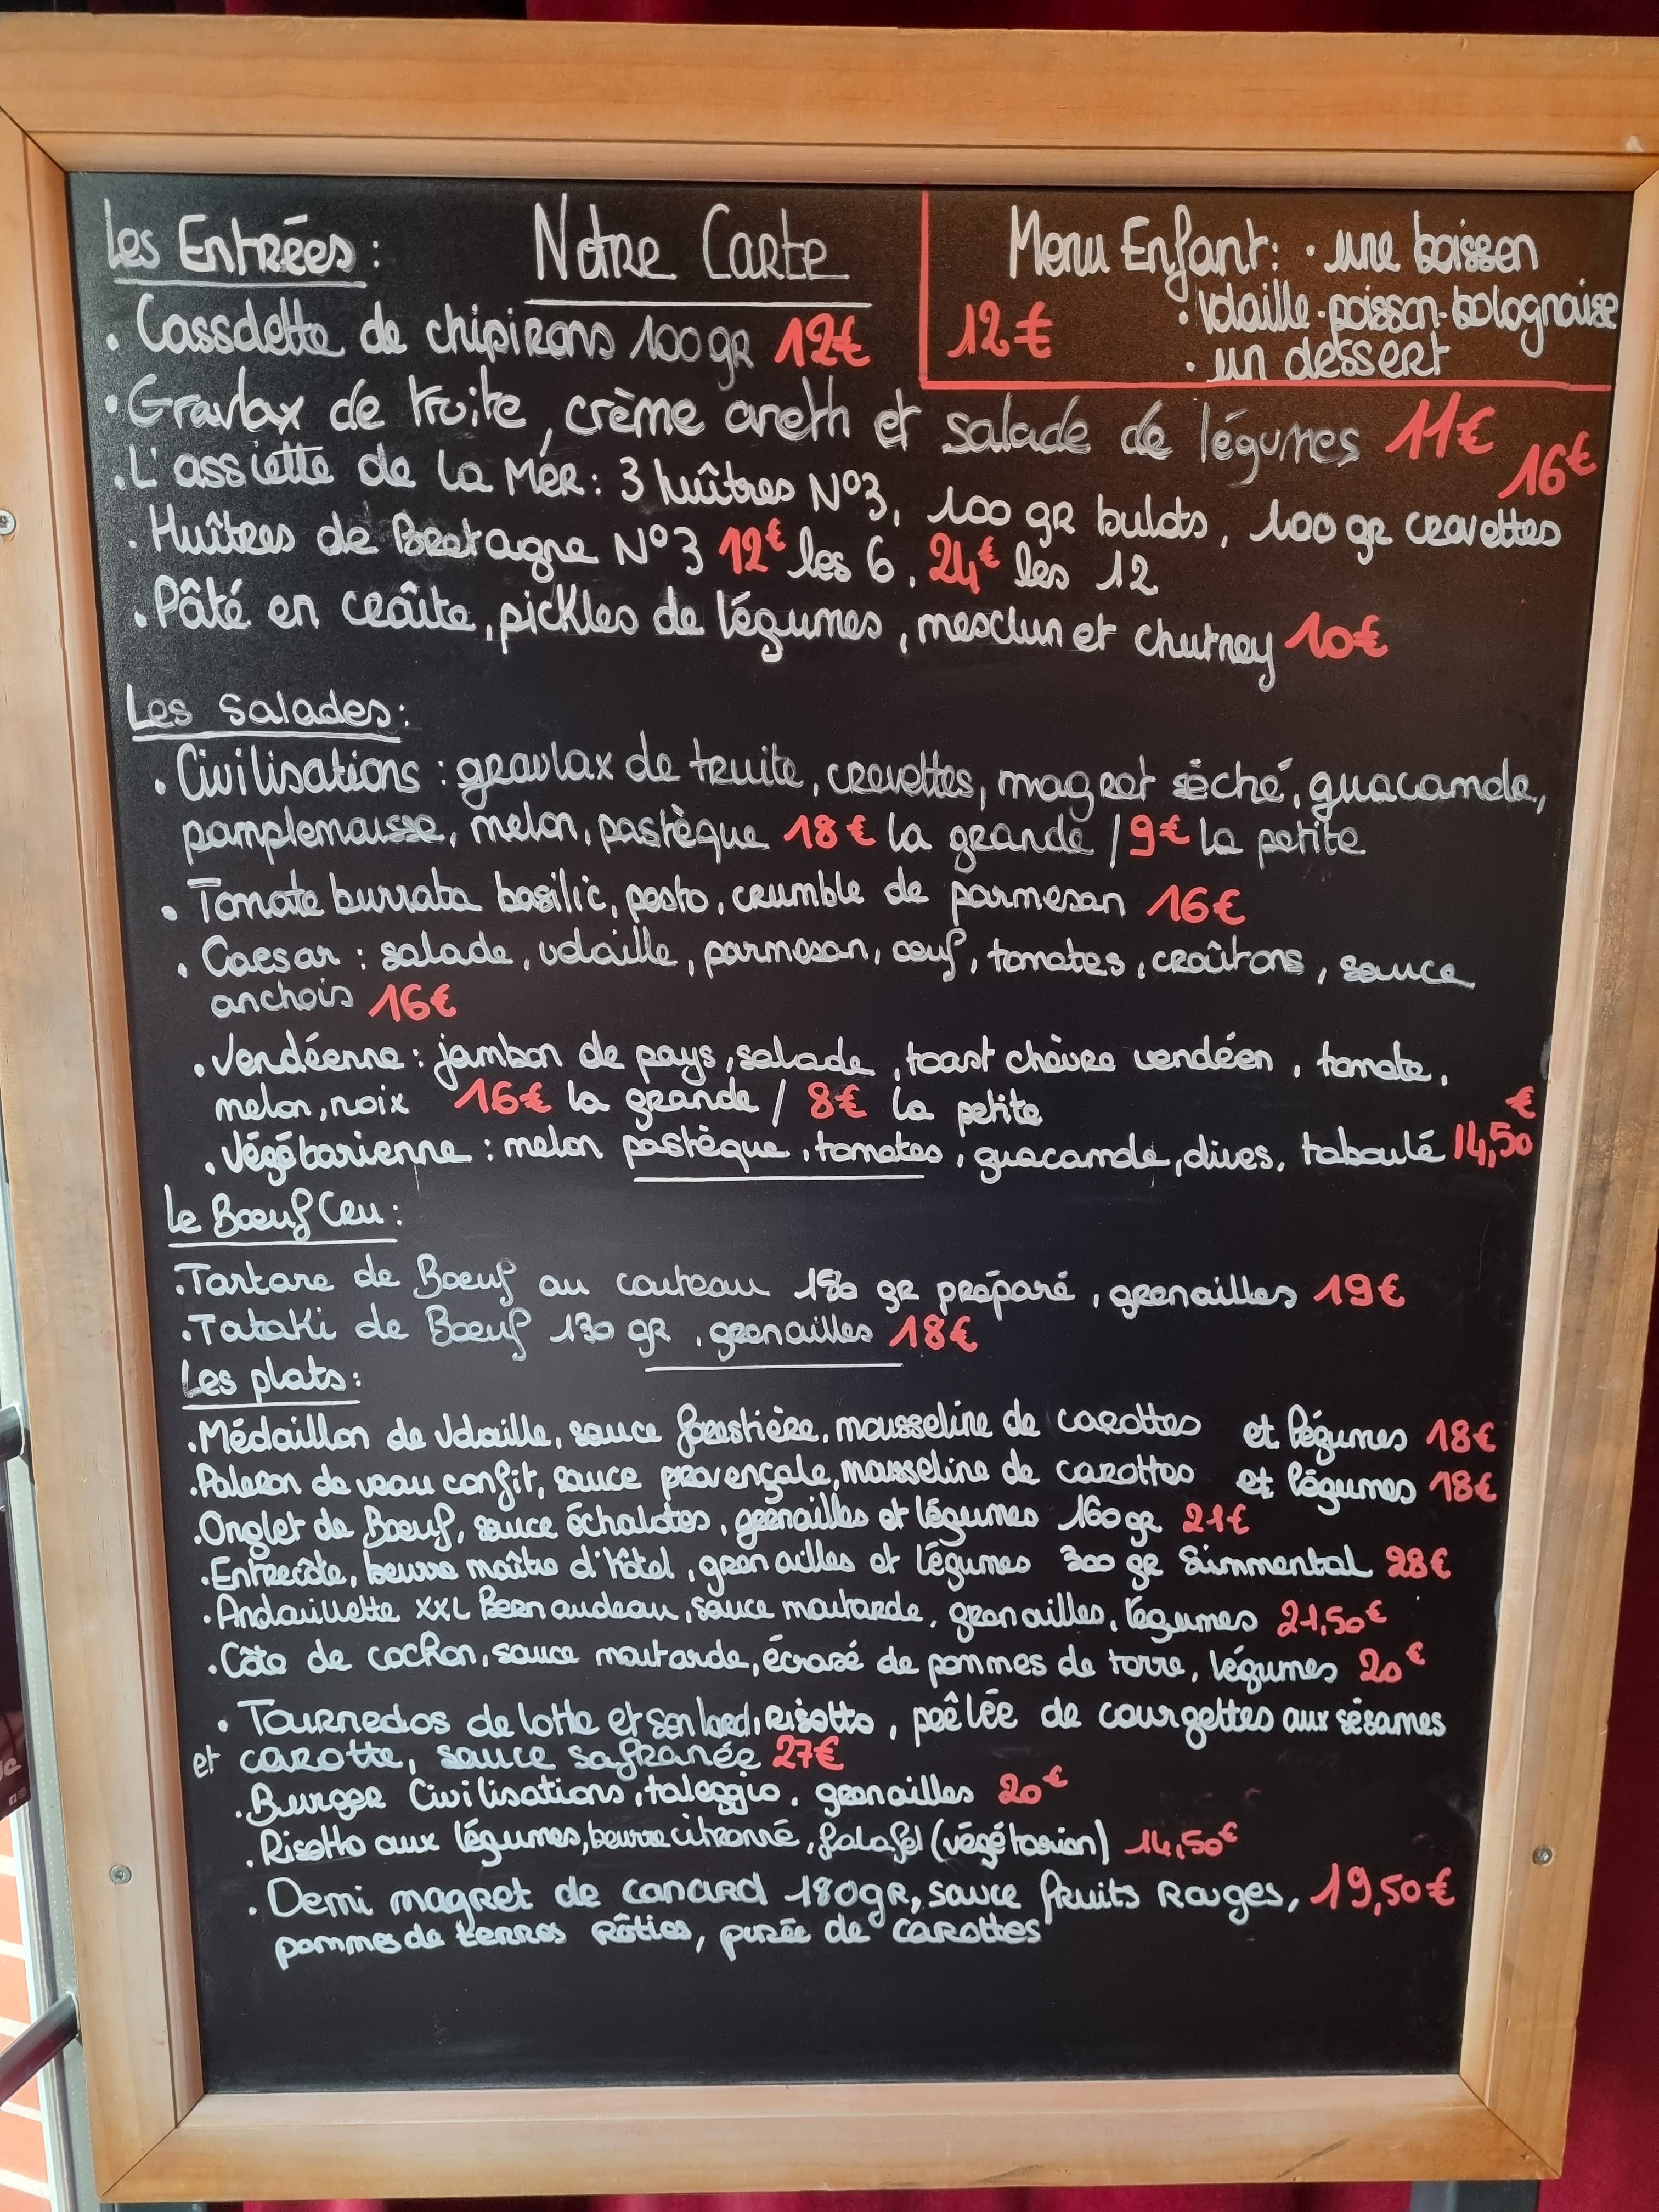 Les Entrées :
Notre Carte
Menu Enfant : • une boisson
• volaille • poisson • bolognaise
12€
• un dessert
• Cassolette de chipirons 100gr 12€
• Gravlax de truite, crème aneth et salade de légumes 11€
• L'assiette de la Mer : 3 huîtres N°3, 100 gr bulots, 100 gr crevettes 16€
• Huîtres de Bretagne N°3 12€ les 6, 24€ les 12
• Pâté en croûte, pickles de légumes, mesclun et chutney 10€
Les salades :
• Civilisations : gravlax de truite, crevettes, magret séché, guacamole,
pamplemousse, melon, pastèque 18€ la grande / 9€ la petite
• Tomate burrata basilic, pesto, crumble de parmesan 16€
• Caesar : salade, volaille, parmesan, oeuf, tomates, croûtons, sauce
anchois 16€
• Vendéenne : jambon de pays, salade, toast chèvre vendéen, tomate,
melon, noix 16€ la grande / 8€ la petite
• Végétarienne : melon pastèque, tomates, guacamole, olives, taboulé 14,50€
Le Boeuf Cru :
• Tartare de Boeuf au couteau 180 gr préparé, grenailles 19€
• Tataki de Boeuf 130 gr, grenailles 18€
Les plats :
• Médaillon de Volaille, sauce forestière, mousseline de carottes et légumes 18€
• Paleron de veau confit, sauce provençale, mousseline de carottes et légumes 18€
• Onglet de Boeuf, sauce échalotes, grenailles et légumes 160gr 21€
• Entrecôte, beurre maître d'hôtel, grenailles et légumes 300 gr Simmental 28€
• Andouillette XXL Bernaudeau, sauce moutarde, grenailles, légumes 21,50€
• Côte de cochon, sauce moutarde, écrasé de pommes de terre, légumes 20€
• Tournedos de lotte et son lard, Risotto, poêlée de courgettes aux sésames
et carotte, sauce safranée 27€
• Burger Civilisations, taleggio, grenailles 20€
• Risotto aux légumes, beurre citronné, falafel (végétarien) 14,50€
• Demi magret de canard 180gr, sauce fruits Rouges, 19,50€
pommes de terres rôties, purée de carottes